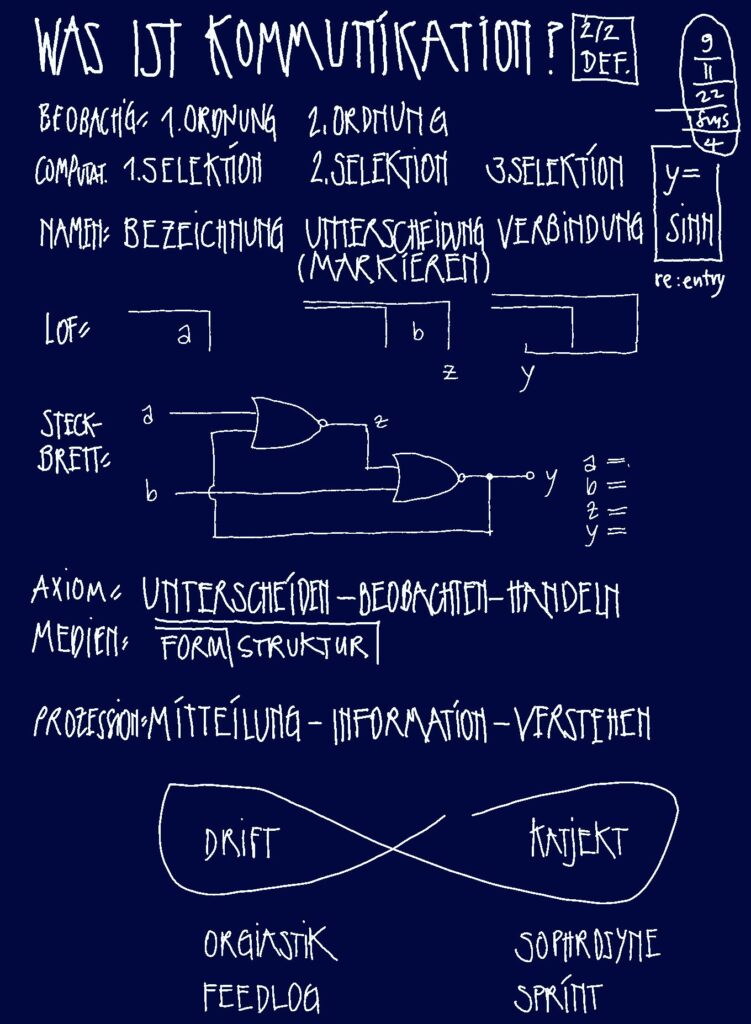 WAS IST KOMMUNIKATION?
2/2
DEF.
9
11
22
4
BEOBACHTG= 1.ORDNUNG 2.ORDNUNG
COMPUTAT. 1.SELEKTION 2.SELEKTION 3.SELEKTION
y=
SINN
re:entry
NAMEN= BEZEICHNUNG UNTERSCHEIDUNG VERBINDUNG
(MARKIEREN)
LOF= a b
z y
STECK-
BRETT=
a z
b y
a =
b =
z =
y =
AXIOM= UNTERSCHEIDEN-BEOBACHTEN-HANDELN
MEDIEN= FORM STRUKTUR
PROZESSION=MITTEILUNG-INFORMATION-VERSTEHEN
DRIFT KATJEKT
ORGIASTIK SOPHROSYNE
FEEDLOG SPRINT